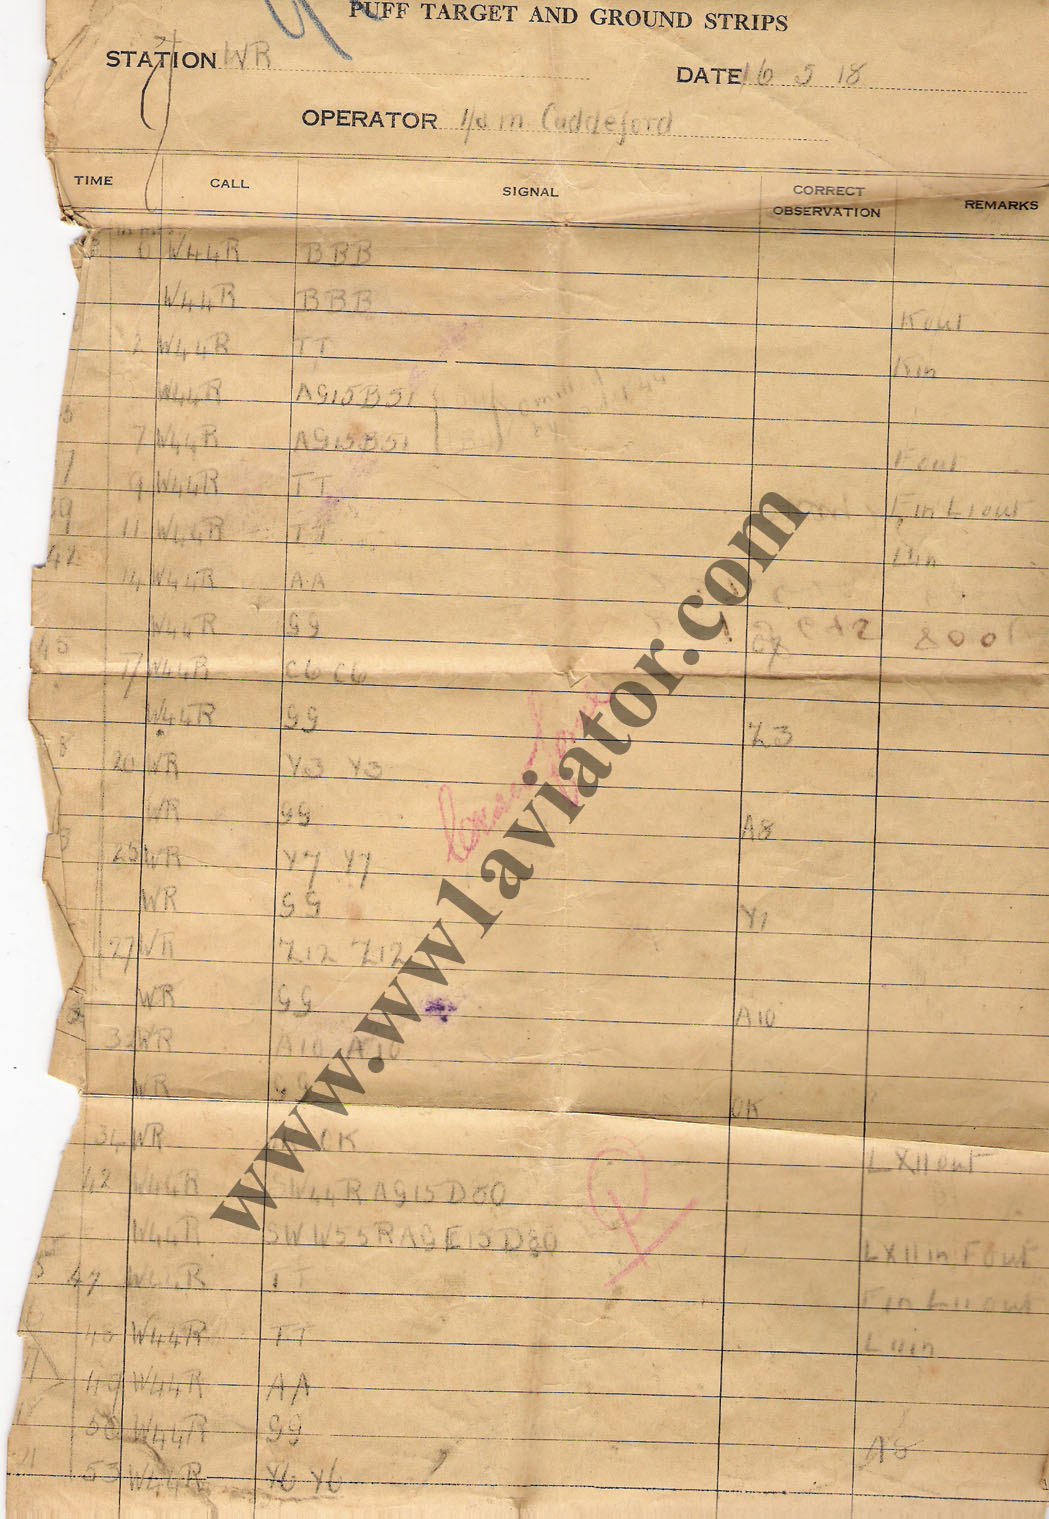 PUFF TARGET AND GROUND STRIPS
STATION WR
DATE 16 5 18
OPERATOR 1/am Caddeford
TIME CALL SIGNAL CORRECT OBSERVATION REMARKS
0 W44R BBB
W44R BBB
K out
2 W44R TT
K in
W44R AG15B51
7 W44R AG15B51
F out
9 W44R TT
F in L11 out
11 W44R TT
L11 in
14 W44R AA
W44R GG
17 W44R C6 C6
W44R GG
Z3
20 WR Y3 Y3
WR GG
A8
25 WR Y7 Y7
WR GG
Y1
27 WR Z12 Z12
WR GG
A10
32 WR A10 A10
WR GG
OK
34 WR OK
LX11 out
42 W44R SW44RAG15D50
W44R SWW55RAGE15D80
LX11 in F out
47 W44R TT
F in L11 out
48 W44R TT
L11 in
49 W44R AA
50 W44R GG
A8
53 W44R Y6 Y6
www.ww1aviator.com